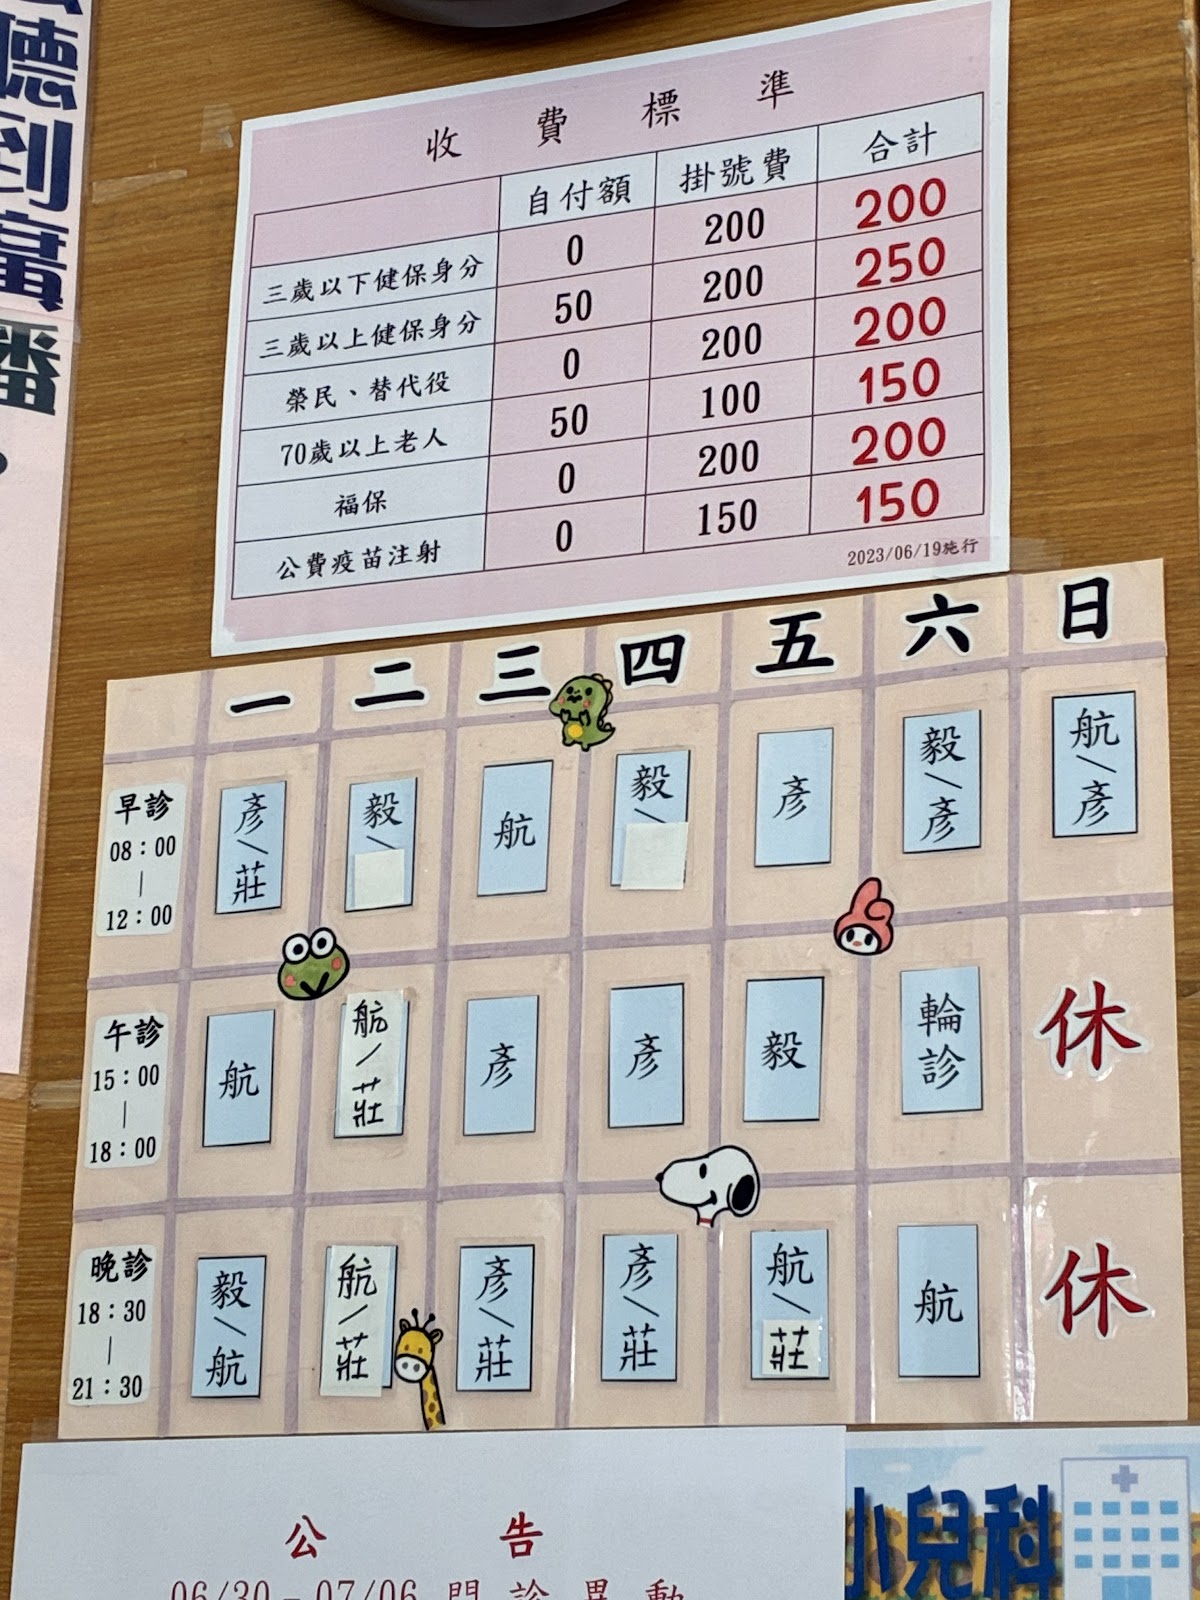 聽到廣
播
收費標準
自付額 掛號費 合計
三歲以下健保身分 0 200 200
三歲以上健保身分 50 200 250
榮民、替代役 0 200 200
70歲以上老人 50 100 150
福保 0 200 200
公費疫苗注射 0 150 150
2023/06/19施行
一 二 三 四 五 六 日
早診 08:00 | 12:00 彥/莊 毅/ 航 毅/ 彥 毅/彥 航/彥
午診 15:00 | 18:00 航 航/莊 彥 彥 毅 輪診 休
晚診 18:30 | 21:30 毅/航 航/莊 彥/莊 彥/莊 航/莊 航 休
公告
06/30-07/06 門診異動
小兒科